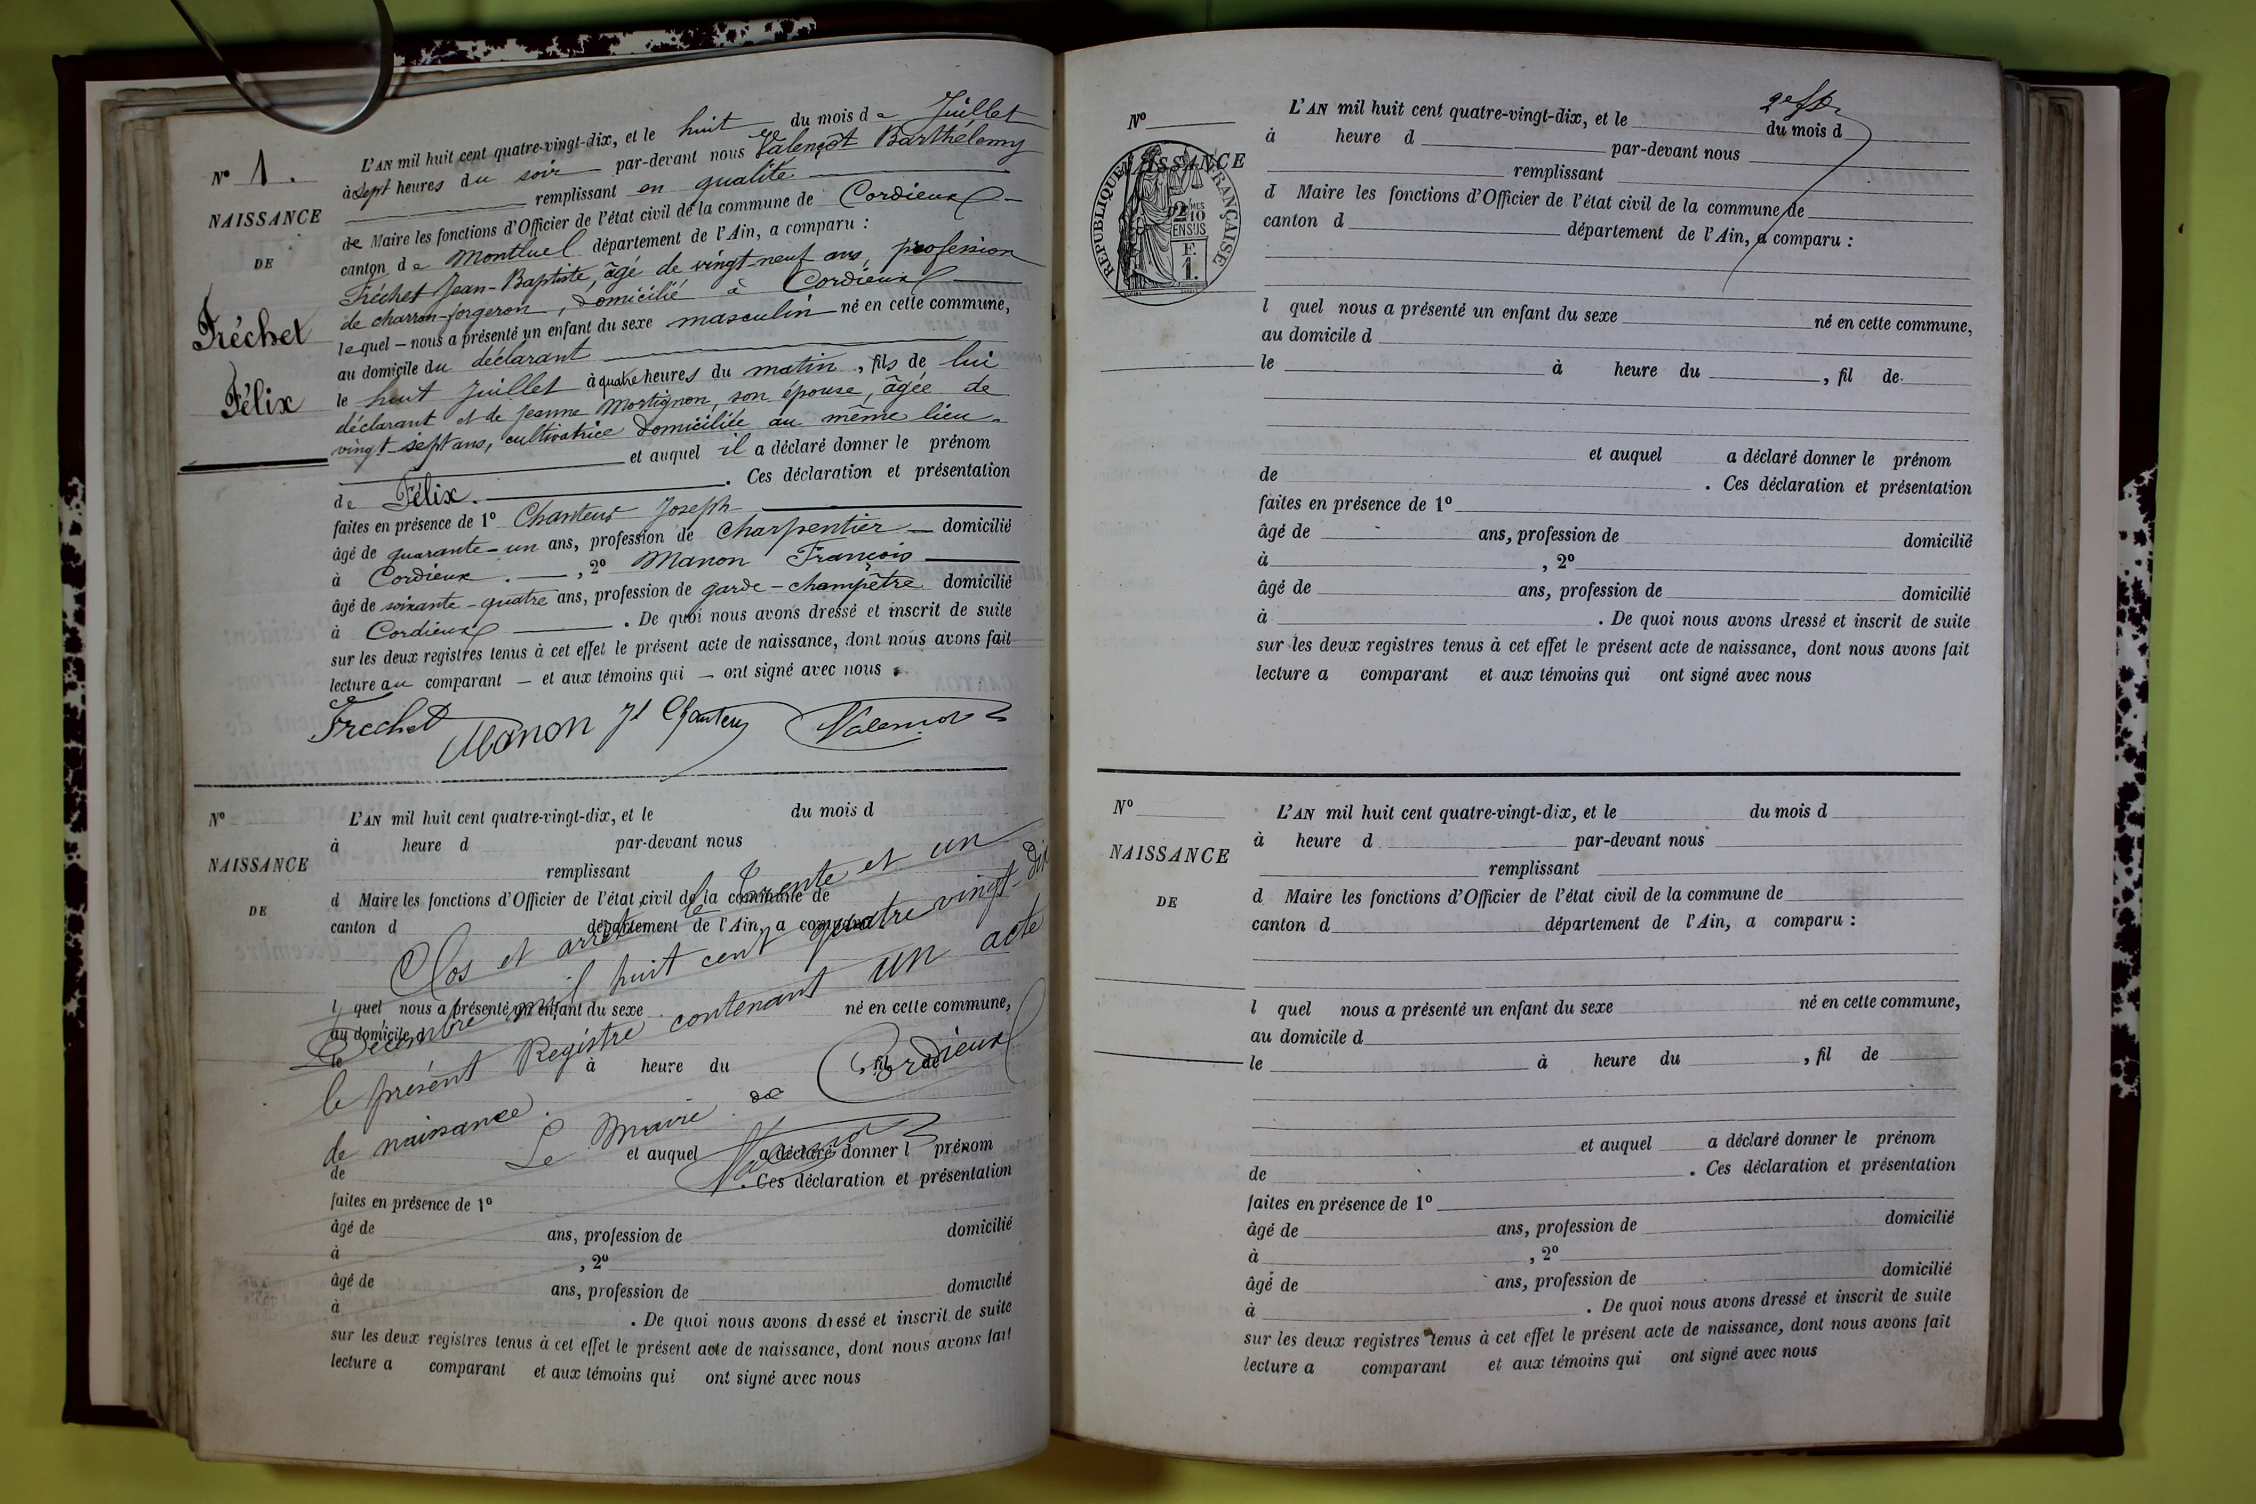 N° 1.
NAISSANCE
DE
Fréchet
Félix
L'AN mil huit cent quatre-vingt-dix, et le huit du mois de Juillet
à sept heures du soir par-devant nous Valençot Barthélemy
remplissant en qualité
de Maire les fonctions d'Officier de l'état civil de la commune de Cordieux
canton de Montluel département de l'Ain, a comparu :
Fréchet Jean-Baptiste, âgé de vingt-neuf ans, profession
de charron-forgeron, domicilié à Cordieux
lequel nous a présenté un enfant du sexe masculin né en cette commune,
au domicile du déclarant
le huit Juillet à quatre heures du matin, fils de lui
déclarant et de Jeanne Mortignon, son épouse, âgée de
vingt-sept ans, cultivatrice domiciliée au même lieu
et auquel il a déclaré donner le prénom
de Félix. . Ces déclaration et présentation
faites en présence de 1° Chanteur Joseph
âgé de quarante-un ans, profession de charpentier domicilié
à Cordieux. , 2° Manon François
âgé de soixante-quatre ans, profession de garde-champêtre domicilié
à Cordieux . De quoi nous avons dressé et inscrit de suite
sur les deux registres tenus à cet effet le présent acte de naissance, dont nous avons fait
lecture au comparant et aux témoins qui ont signé avec nous.
Frechet Manon Jh Chanteur Valençot
N°
NAISSANCE
DE
L'AN mil huit cent quatre-vingt-dix, et le du mois d
à heure d par-devant nous
remplissant
d Maire les fonctions d'Officier de l'état civil de la commune de
canton d département de l'Ain, a comparu :
l quel nous a présenté un enfant du sexe né en cette commune,
au domicile d
le à heure du , fil de
et auquel a déclaré donner l prénom
de . Ces déclaration et présentation
faites en présence de 1°
âgé de ans, profession de domicilié
à , 2°
âgé de ans, profession de domicilié
à . De quoi nous avons dressé et inscrit de suite
sur les deux registres tenus à cet effet le présent acte de naissance, dont nous avons fait
lecture a comparant et aux témoins qui ont signé avec nous
Clos et arrêté, le trente et un
Décembre mil huit cent quatre vingt-dix
le présent Registre contenant un acte
de naissance.
Le Maire de Cordieux
Valençot
N°
NAISSANCE
RÉPUBLIQUE FRANÇAISE
2 MES
10
EN SUS
F.
1.
L'AN mil huit cent quatre-vingt-dix, et le du mois d
à heure d par-devant nous
remplissant
d Maire les fonctions d'Officier de l'état civil de la commune de
canton d département de l'Ain, a comparu :
l quel nous a présenté un enfant du sexe né en cette commune,
au domicile d
le à heure du , fil de
et auquel a déclaré donner le prénom
de . Ces déclaration et présentation
faites en présence de 1°
âgé de ans, profession de domicilié
à , 2°
âgé de ans, profession de domicilié
à . De quoi nous avons dressé et inscrit de suite
sur les deux registres tenus à cet effet le présent acte de naissance, dont nous avons fait
lecture a comparant et aux témoins qui ont signé avec nous
N°
NAISSANCE
DE
L'AN mil huit cent quatre-vingt-dix, et le du mois d
à heure d par-devant nous
remplissant
d Maire les fonctions d'Officier de l'état civil de la commune de
canton d département de l'Ain, a comparu :
l quel nous a présenté un enfant du sexe né en cette commune,
au domicile d
le à heure du , fil de
et auquel a déclaré donner le prénom
de . Ces déclaration et présentation
faites en présence de 1°
âgé de ans, profession de domicilié
à , 2°
âgé de ans, profession de domicilié
à . De quoi nous avons dressé et inscrit de suite
sur les deux registres tenus à cet effet le présent acte de naissance, dont nous avons fait
lecture a comparant et aux témoins qui ont signé avec nous